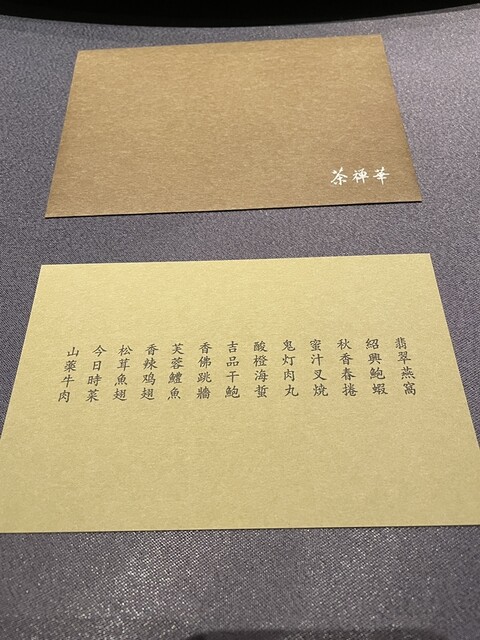 茶禅華
翡翠燕窩
紹興鮑蝦
秋香春捲
蜜汁叉燒
鬼灯肉丸
酸橙海蜇
吉品干鮑
香佛跳牆
芙蓉鱧魚
香辣鸡翅
松茸魚翅
今日時菜
山薬牛肉